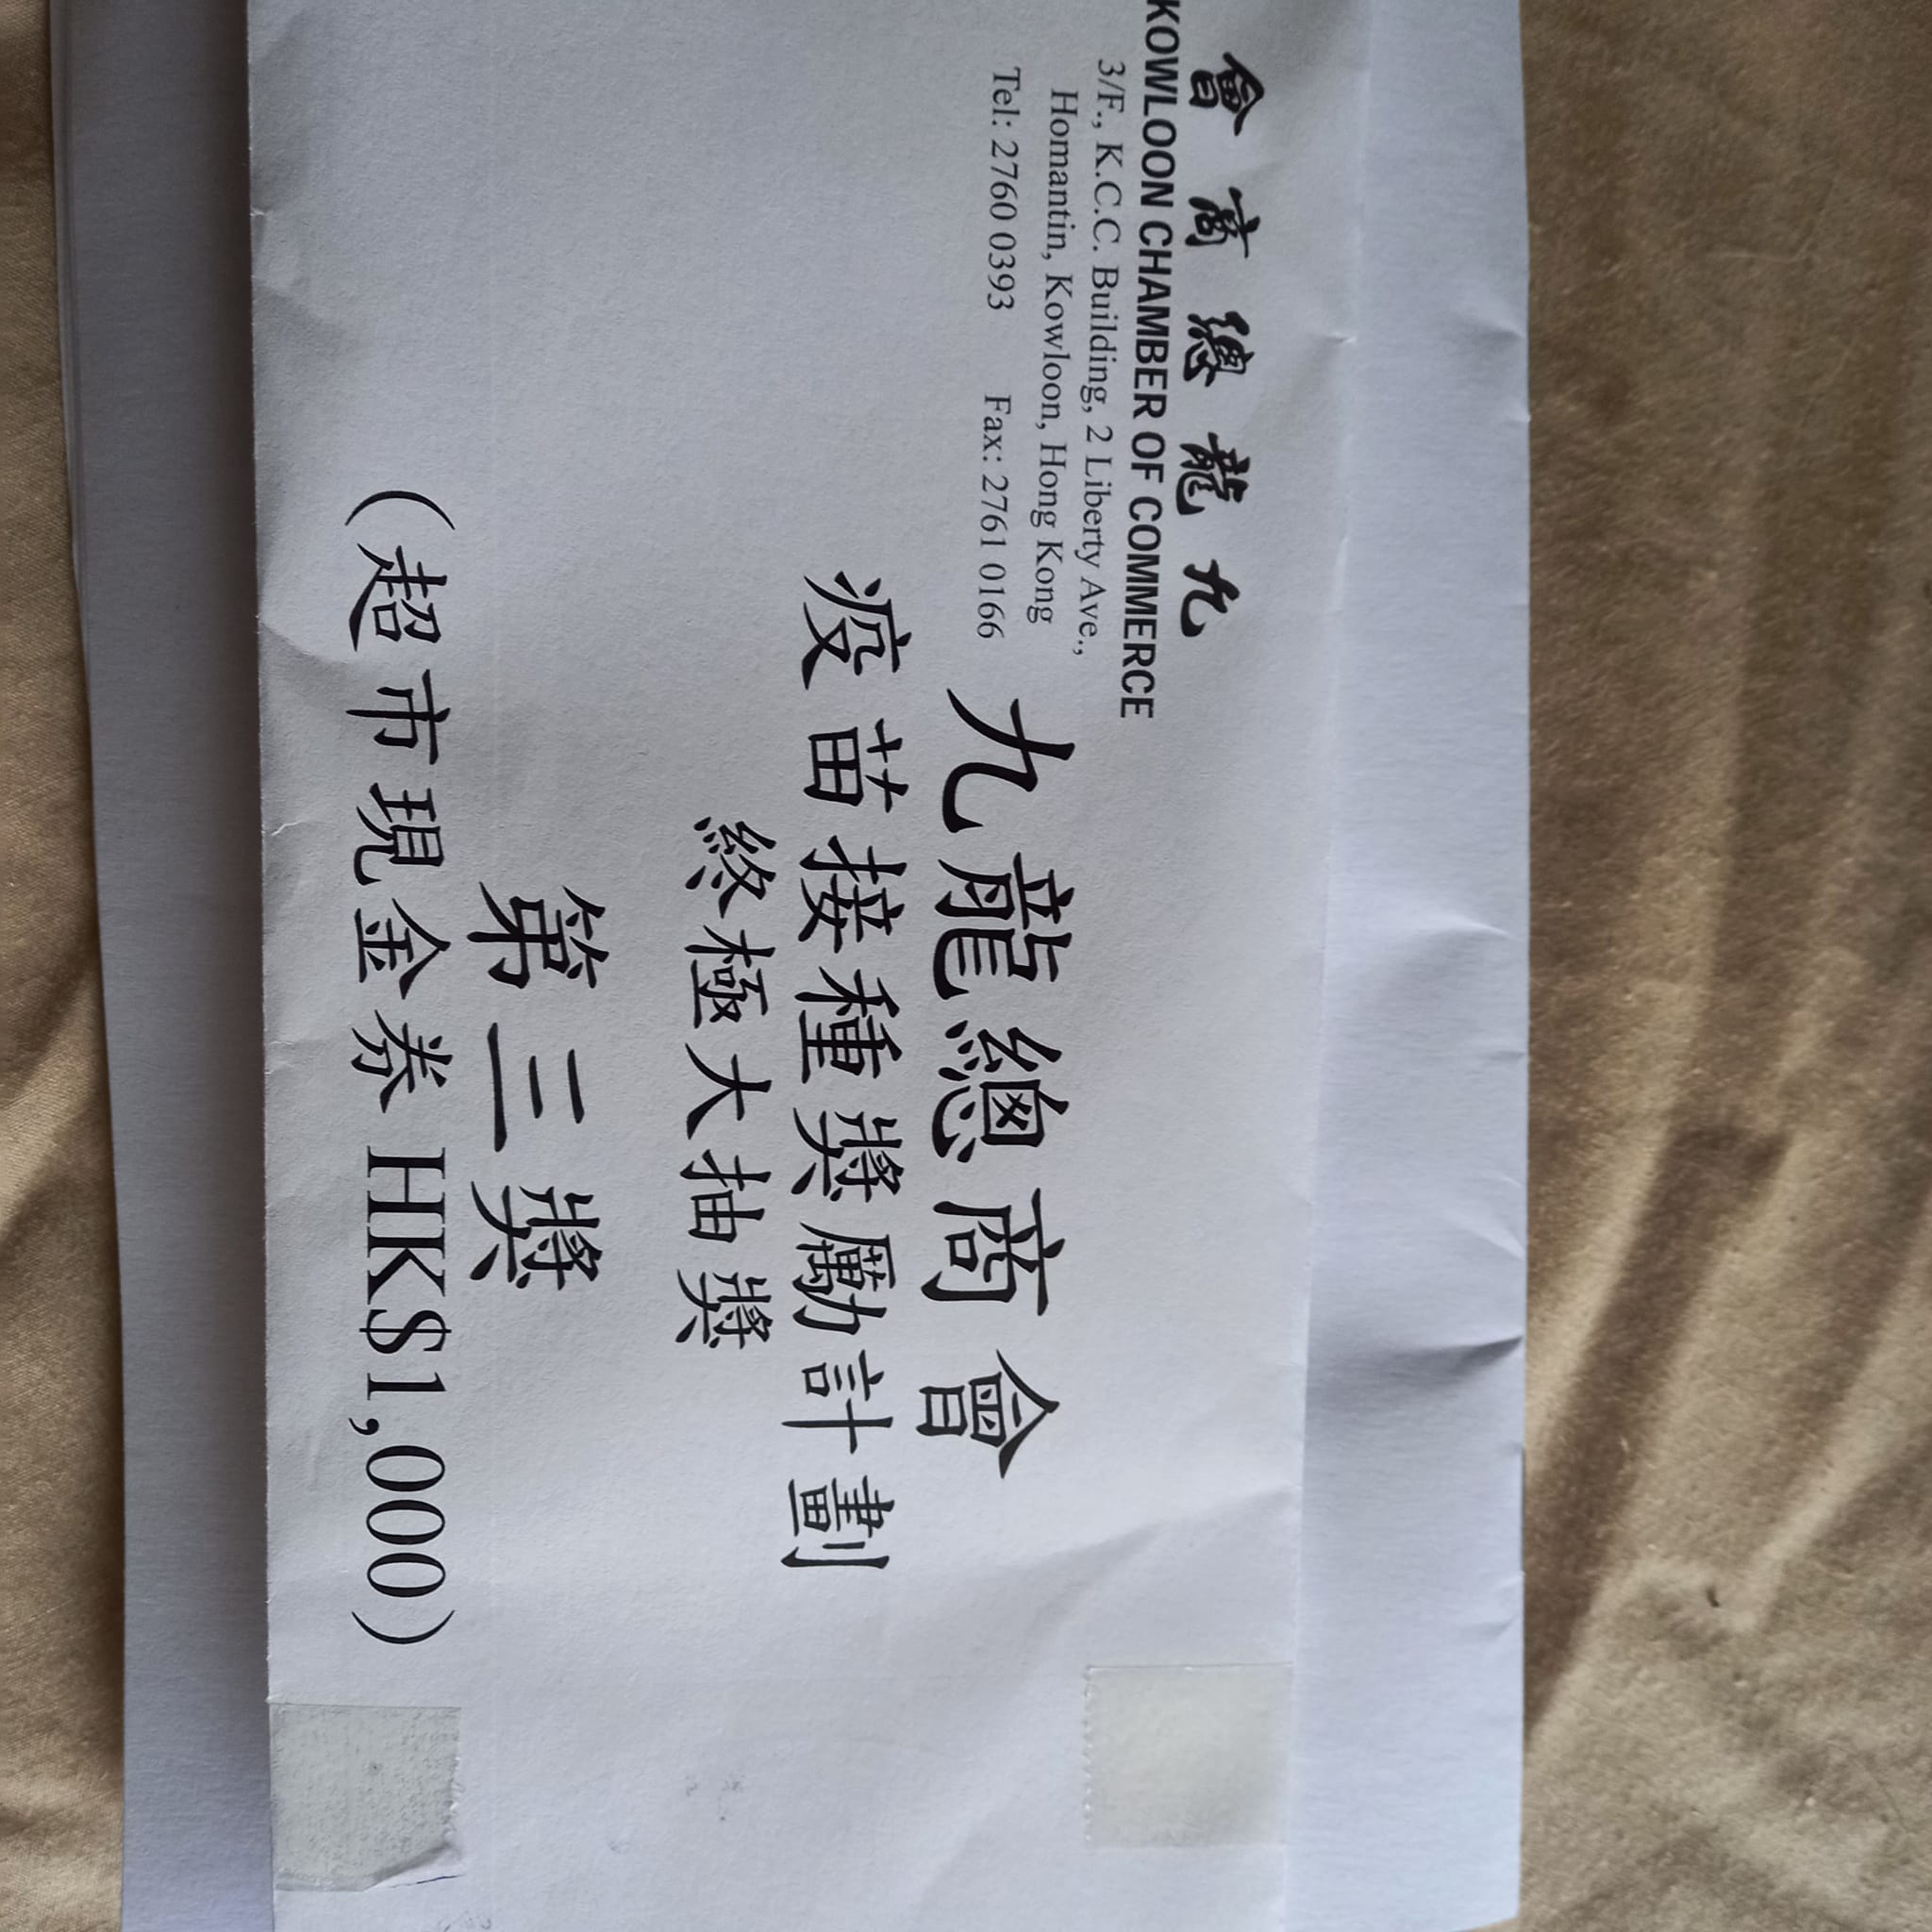 會商總龍九
KOWLOON CHAMBER OF COMMERCE
3/F., K.C.C. Building, 2 Liberty Ave.,
Homantin, Kowloon, Hong Kong
Tel: 2760 0393 Fax: 2761 0166
九龍總商會
疫苗接種獎勵計劃
終極大抽獎
第三獎
(超市現金券 HK$1,000)